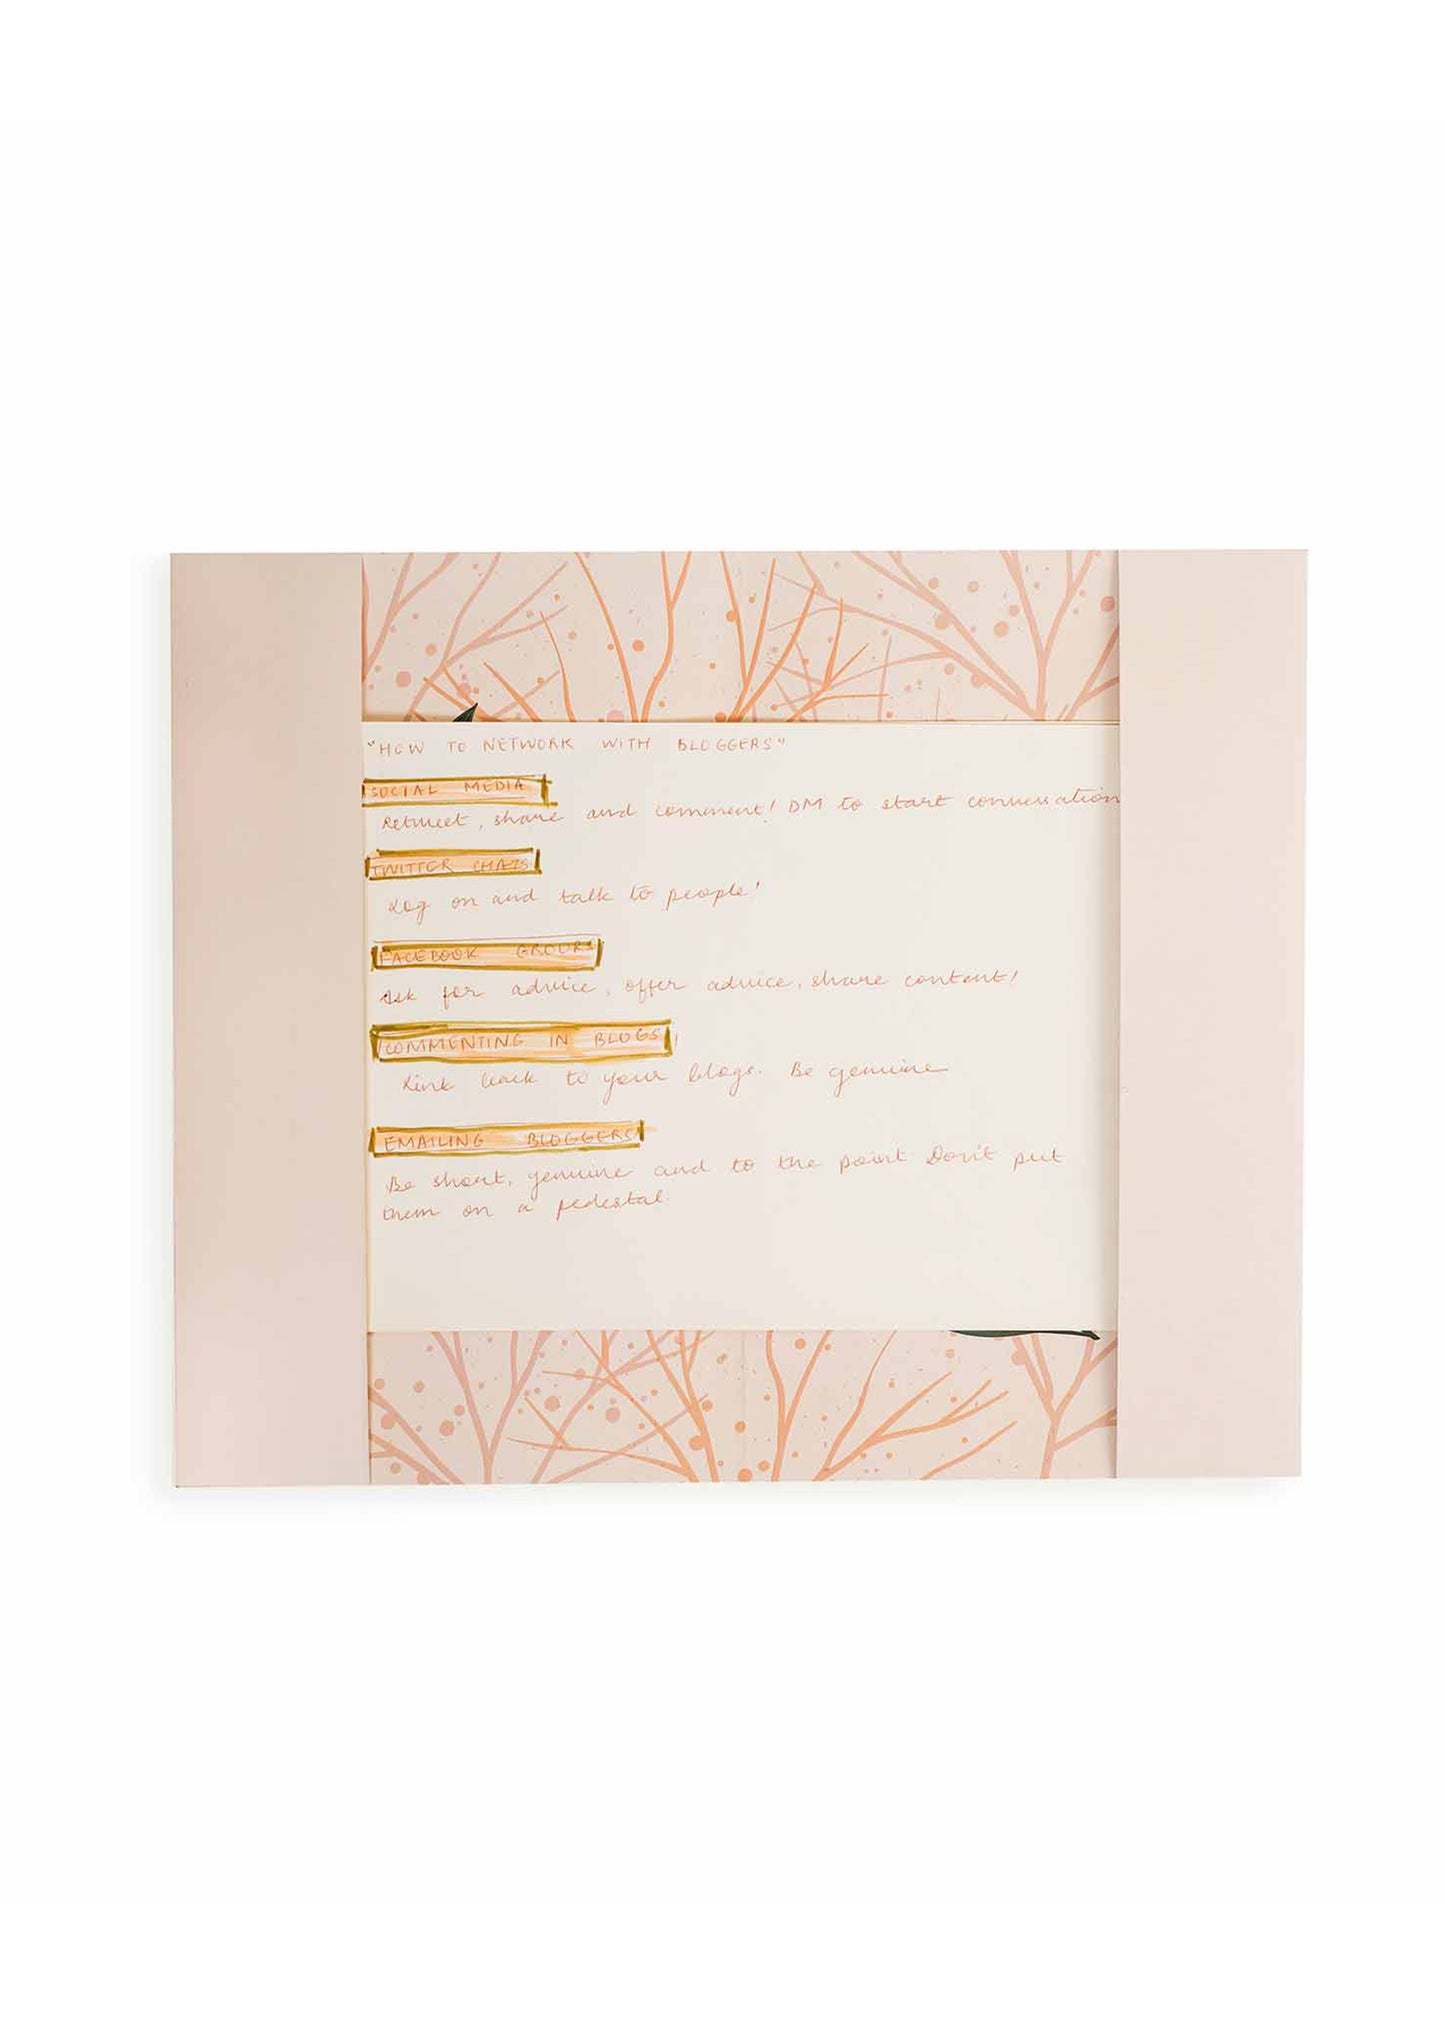 "HOW TO NETWORK WITH BLOGGERS"
SOCIAL MEDIA
Retweet, share and comment! DM to start conversation
TWITTER CHATS
Log on and talk to people!
FACEBOOK GROUPS
Ask for advice, offer advice, share content!
COMMENTING IN BLOGS!
Link back to your blogs. Be genuine
EMAILING BLOGGERS
Be short, genuine and to the point Don't put
them on a pedestal.